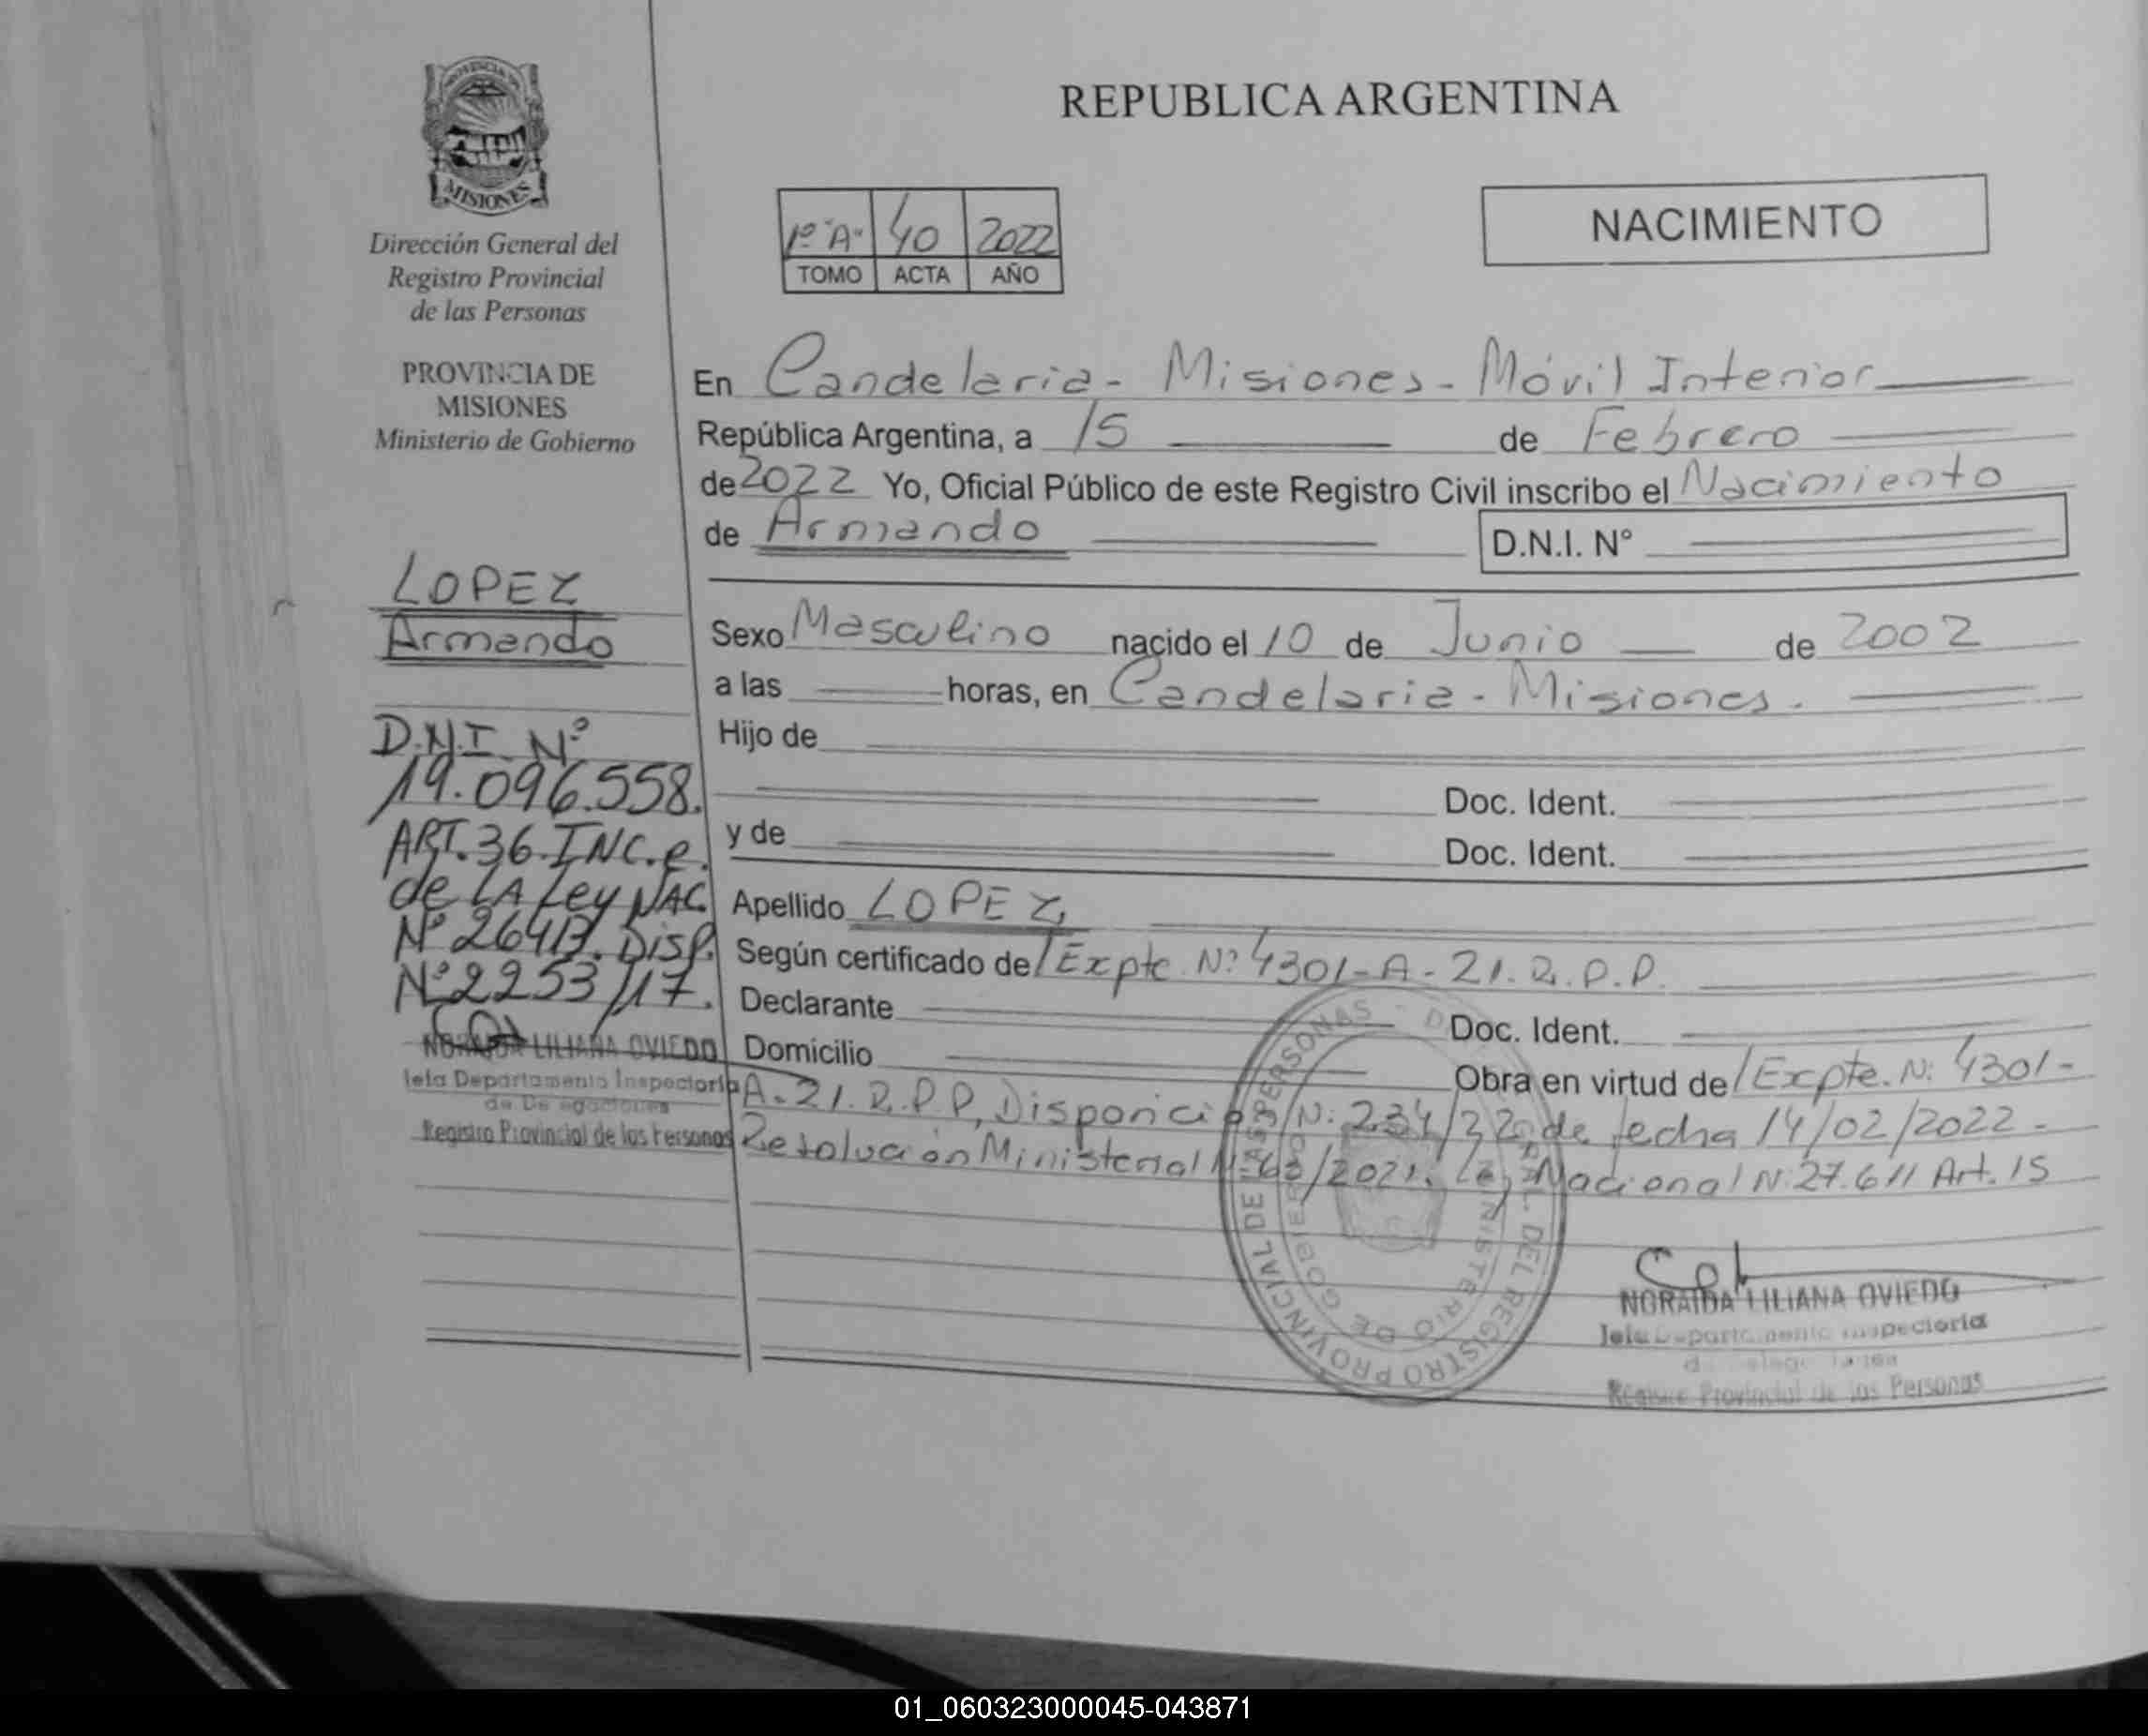 PROVINCIA DE
MISIONES
Dirección General del
Registro Provincial
de las Personas
PROVINCIA DE
MISIONES
Ministerio de Gobierno
LOPEZ
Armando
D.N.I. Nº
19.096.558.
ART. 36. INC. e.
de LA Ley NAC.
Nº 26413. DISP.
Nº 2253/17.
NORAIDA LILIANA OVIEDO
Jefa Departamento Inspectoria
de Delegaciones
Registro Provincial de las Personas
REPUBLICA ARGENTINA
1º "A" 40 2022
TOMO ACTA AÑO
NACIMIENTO
En Candelaria - Misiones - Móvil Interior
República Argentina, a 15 de Febrero
de 2022 Yo, Oficial Público de este Registro Civil inscribo el Nacimiento
de Armando D.N.I. N°
Sexo Masculino nacido el 10 de Junio de 2002
a las horas, en Candelaria - Misiones.
Hijo de
Doc. Ident.
y de Doc. Ident.
Apellido LOPEZ
Según certificado de/Expte. Nº 4301-A-21. R.P.P.
Declarante Doc. Ident.
Domicilio
Obra en virtud de/Expte. Nº 4301-
A-21. R.P.P, Disposición Nº 234/22, de fecha 14/02/2022 -
Resolución Ministerial /2021. Ley Nacional Nº 27.611 Art. 15
REGISTRO PROVINCIAL DE LAS PERSONAS
MINISTERIO DE GOBIERNO
NORAIDA LILIANA OVIEDO
Jefa Departamento Inspectoria
Registro Provincial de las Personas
01_060323000045-043871